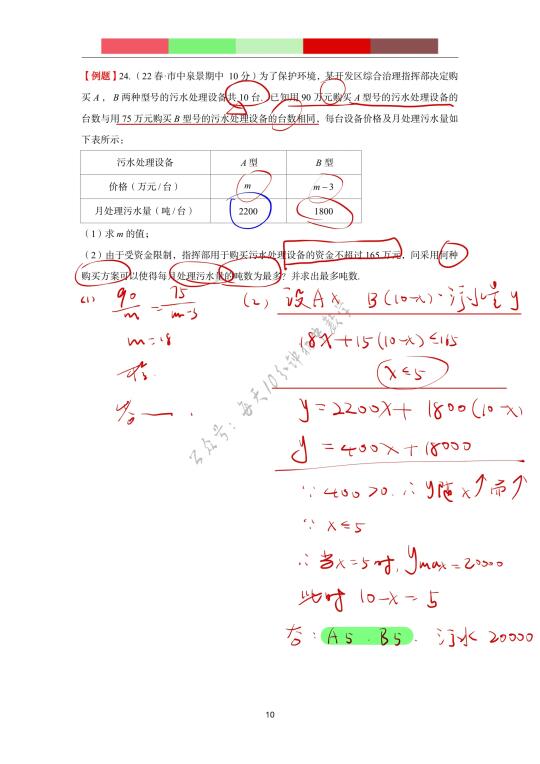 【例题】24.（22 春·市中泉景期中 10 分）为了保护环境，某开发区综合治理指挥部决定购
买 A ， B 两种型号的污水处理设备共 10 台．已知用 90 万元购买 A 型号的污水处理设备的
台数与用 75 万元购买 B 型号的污水处理设备的台数相同，每台设备价格及月处理污水量如
下表所示：
污水处理设备 A 型 B 型
价格（万元/台） m m－3
月处理污水量（吨/台） 2200 1800
（1）求 m 的值；
（2）由于受资金限制，指挥部用于购买污水处理设备的资金不超过 165 万元，问采用何种
购买方案可以使得每月处理污水量的吨数为最多？并求出最多吨数.
(1) 90/m = 75/m-3
m=18
检.
答 — .
(2) 设A x B(10-x)·污水量 y
18x+15(10-x)≤165
x≤5
y=2200x+1800(10-x)
y=400x+18000
∵400>0.∴y随x↑而↑
∵ x≤5
∴当x=5时, ymax=20000
此时 10-x=5
答：A5 . B5 . 污水 20000
公众号：每天10分钟初中数学
10